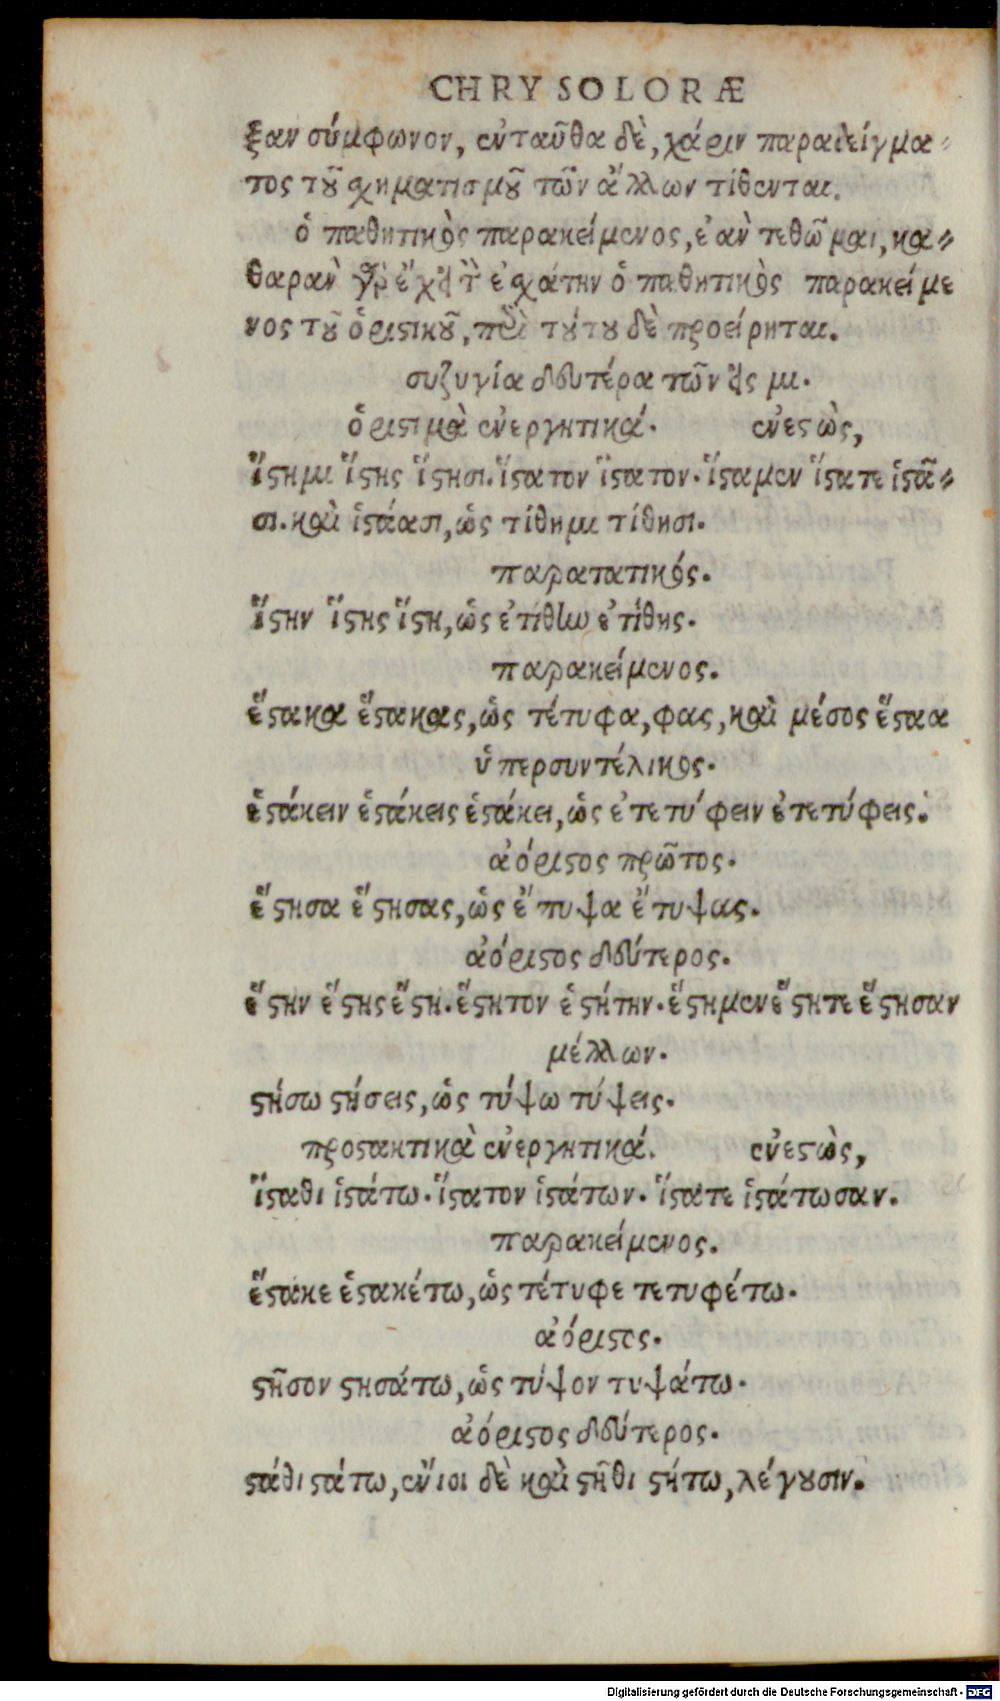 CHRYSOLORÆ
ξαν σύμφωνον, ἐνταῦθα δὲ, χάριν παραδείγμα-
τος τοῦ σχηματισμοῦ τῶν ἄλλων τίθενται.
ὁ παθητικὸς παρακείμενος, ἐὰν τεθῶμαι, κα-
θαρὰν γὰρ ἔχει τὴν ἐσχάτην ὁ παθητικὸς παρακείμε
νος τοῦ ὁριστικοῦ, περὶ τούτου δὲ προείρηται.
συζυγία δευτέρα τῶν εἰς μι.
ὁριστικὰ ἐνεργητικά. ἐνεστὼς,
ἵστημι ἵστης ἵστησι. ἵστατον ἵστατον. ἵσταμεν ἵστατε ἱστᾶ-
σι. καὶ ἱστάασι, ὡς τίθημι τίθησι.
παρατατικός.
ἵστην ἵστης ἵστη, ὡς ἐτίθην ἐτίθης.
παρακείμενος.
ἕστακα ἕστακας, ὡς τέτυφα, φας, καὶ μέσος ἕσταα
ὑπερσυντέλικος.
ἑστάκειν ἑστάκεις ἑστάκει, ὡς ἐτετύφειν ἐτετύφεις.
ἀόριστος πρῶτος.
ἔστησα ἔστησας, ὡς ἔτυψα ἔτυψας.
ἀόριστος δεύτερος.
ἔστην ἔστης ἔστη. ἔστητον ἐστήτην. ἔστημεν ἔστητε ἔστησαν
μέλλων.
στήσω στήσεις, ὡς τύψω τύψεις.
προστακτικὰ ἐνεργητικά. ἐνεστὼς,
ἵσταθι ἱστάτω. ἵστατον ἱστάτων. ἵστατε ἱστάτωσαν.
παρακείμενος.
ἕστακε ἑστακέτω, ὡς τέτυφε τετυφέτω.
ἀόριστος.
στῆσον στησάτω, ὡς τύψον τυψάτω.
ἀόριστος δεύτερος.
στάθι στάτω, ἔνιοι δὲ καὶ στῆθι στήτω, λέγουσιν.
Digitalisierung gefördert durch die Deutsche Forschungsgemeinschaft - DFG